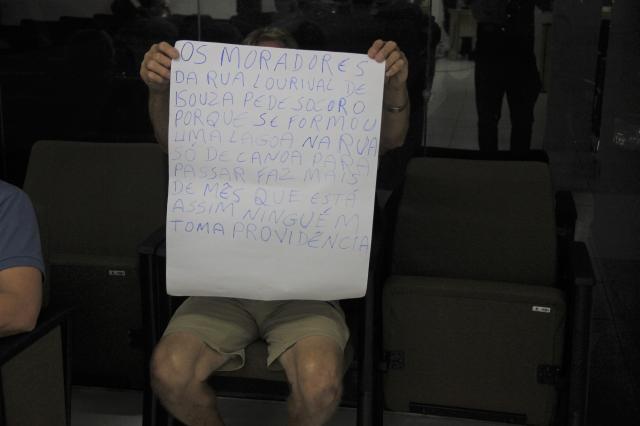 OS MORADORES
DA RUA LOURIVAL DE
SOUZA PEDE SOCORO
PORQUE SE FORMOU
UMA LAGOA NA RUA
SÓ DE CANOA PARA
PASSAR FAZ MAIS
DE MÊS QUE ESTÁ
ASSIM NINGUÉM
TOMA PROVIDÊNCIA